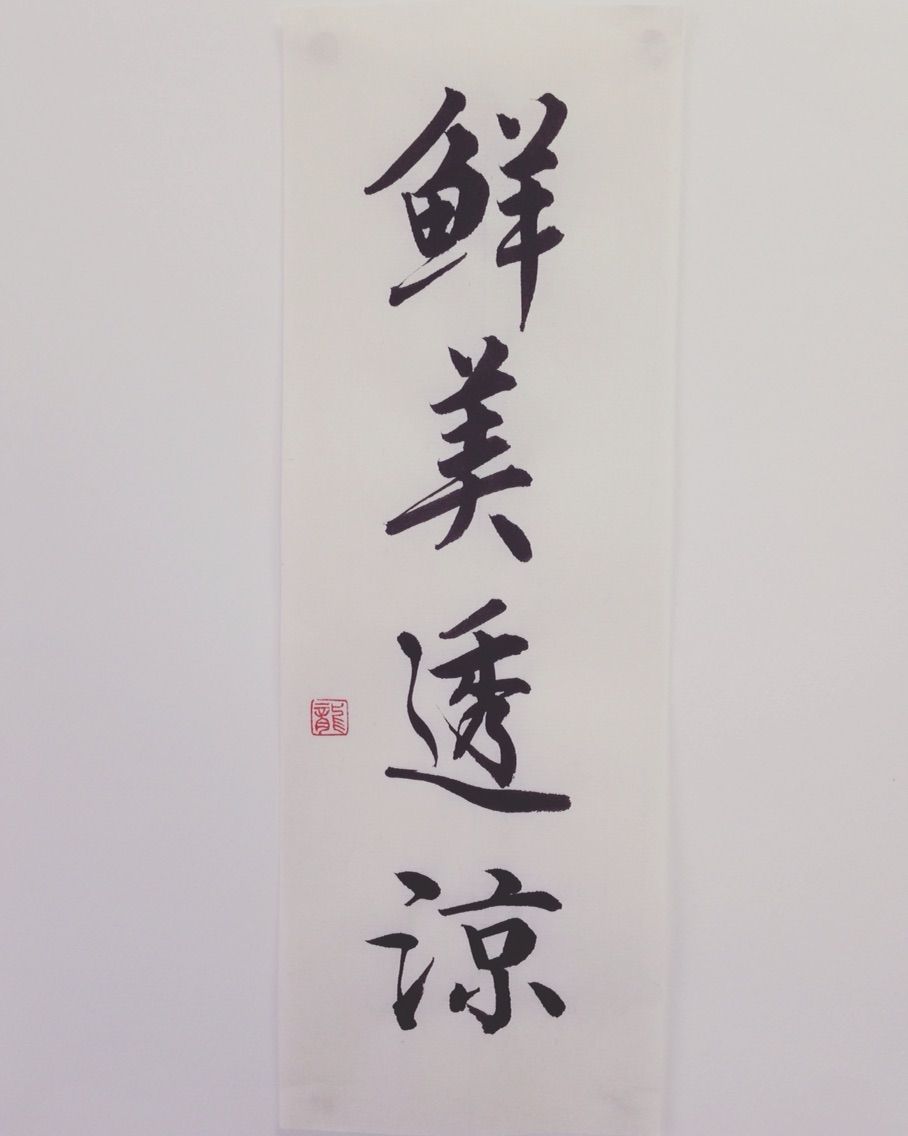 鲜美透涼
龍